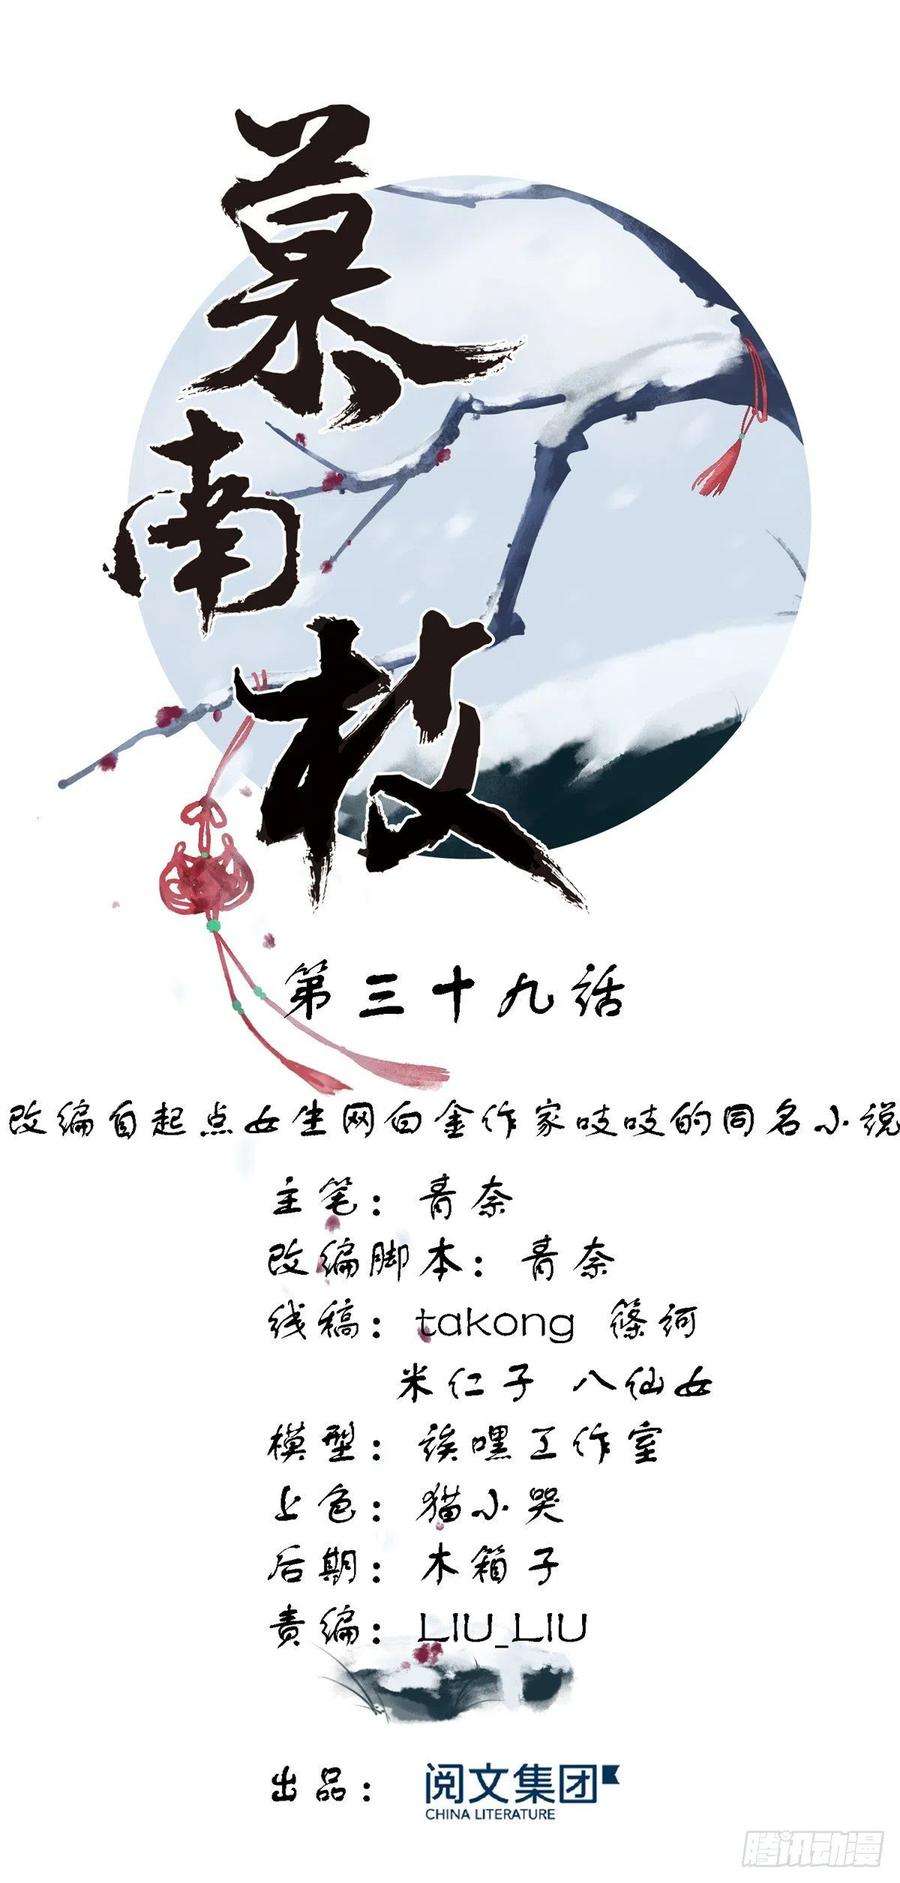 慕南枝
第三十九话
改编自起点女生网白金作家吱吱的同名小说
主笔：青奈
改编脚本：青奈
线稿：takong 篠河
米仁子 八仙女
模型：诶嘿工作室
上色：猫小哭
后期：木箱子
责编：LIU_LIU
出品：阅文集团
CHINA LITERATURE
腾讯动漫